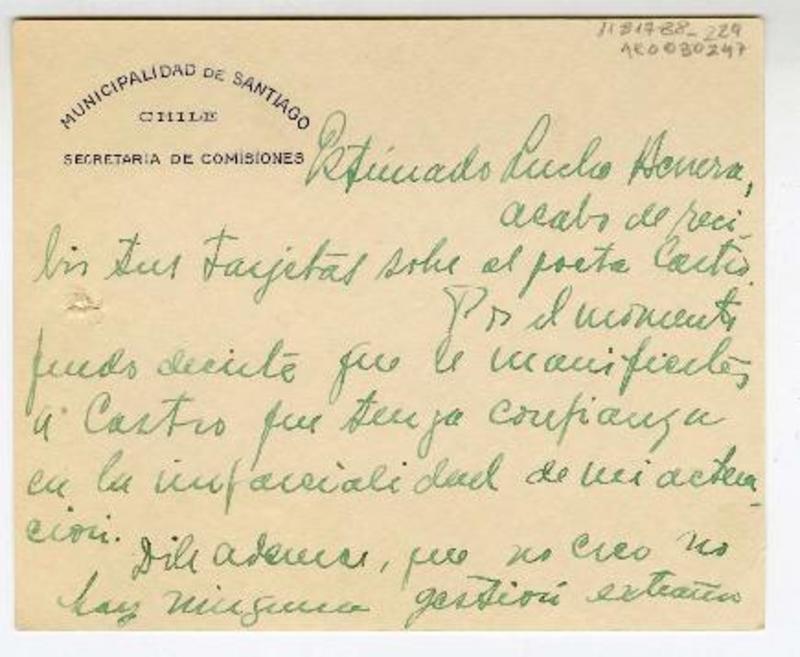 11817-88-229
AE0030247
MUNICIPALIDAD DE SANTIAGO
CHILE
SECRETARIA DE COMISIONES
Estimado Lucho Herrera,
acabo de reci-
bir tus tarjetas sobre el poeta Castro.
Por el momento
puedo decirte que le manifiestes
a Castro que tenga confianza
en la imparcialidad de mi actua-
ción.
Dile además, que no creo no
hay ninguna gestión extraña